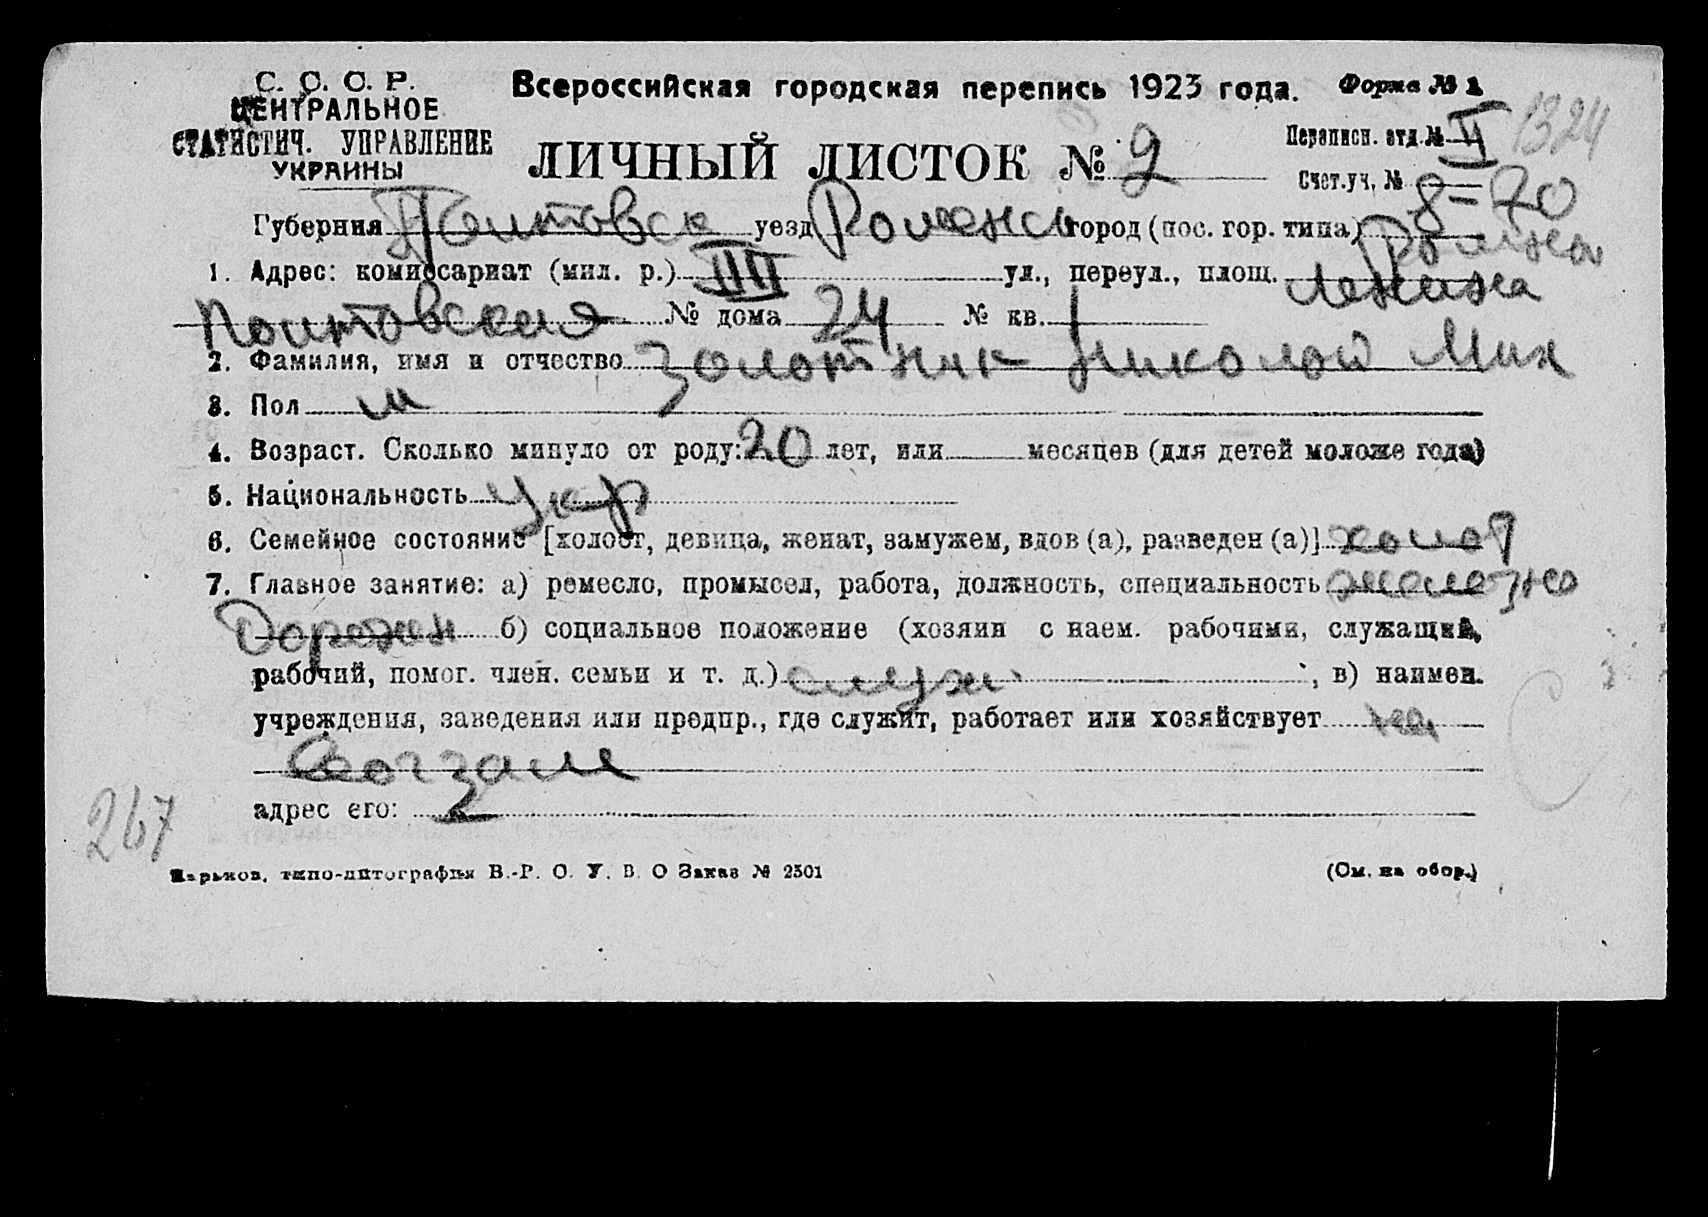 С. С. С. Р.
ЦЕНТРАЛЬНОЕ
СТАТИСТИЧ. УПРАВЛЕНИЕ
УКРАИНЫ
Всероссийская городская перепись 1923 года. Форма № 1
ЛИЧНЫЙ ЛИСТОК № 2
Переписн. отд. № II 1324
Счет. уч. № 8-70
Губерния Полтавск уезд Роменск город (пос. гор. типа) Ромны
1. Адрес: комиссариат (мил. р.) III ул., переул., площ. Ленина
Полтовская № дома 24 № кв. 1
2. Фамилия, имя и отчество Золотник Николай Мих
3. Пол м
4. Возраст. Сколько минуло от роду: 20 лет, или месяцев (для детей моложе года)
5. Национальность Укр
6. Семейное состояние [холост, девица, женат, замужем, вдов (а), разведен (а)] холост
7. Главное занятие: а) ремесло, промысел, работа, должность, специальность железно
Дорожн б) социальное положение (хозяин с наем. рабочими, служащий,
рабочий, помог. член. семьи и т. д.) служ. ; в) наимен.
учреждения, заведения или предпр., где служит, работает или хозяйствует на
Вокзале
адрес его:
267
Харьков, типо-литография В.-Р. О. У. В. О Заказ № 2501 (См. на обор.)